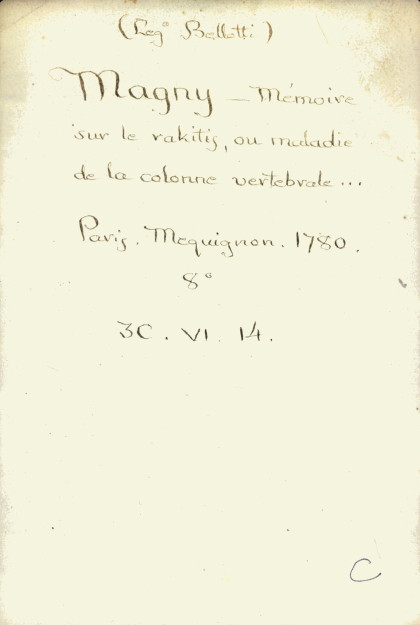 (Leg° Bellotti)
Magny — Mémoire
sur le rakitis, ou maladie
de la colonne vertebrale...
Paris. Mequignon. 1780.
8°
3C. VI. 14.
C